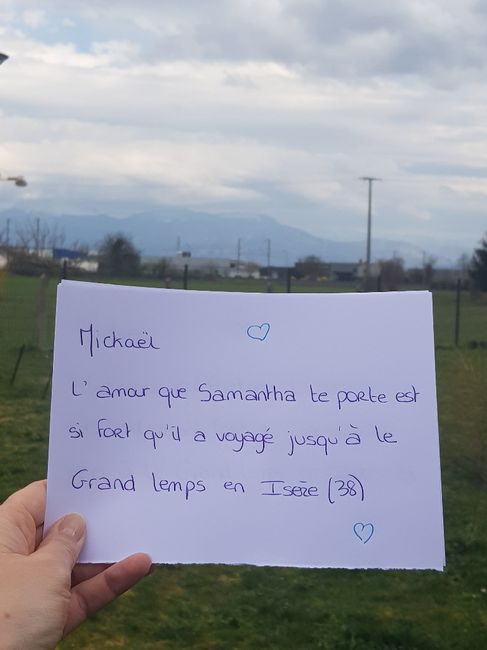 Mickaël
L'amour que Samantha te porte est
si fort qu'il a voyagé jusqu'à le
Grand lemps en Isère (38)